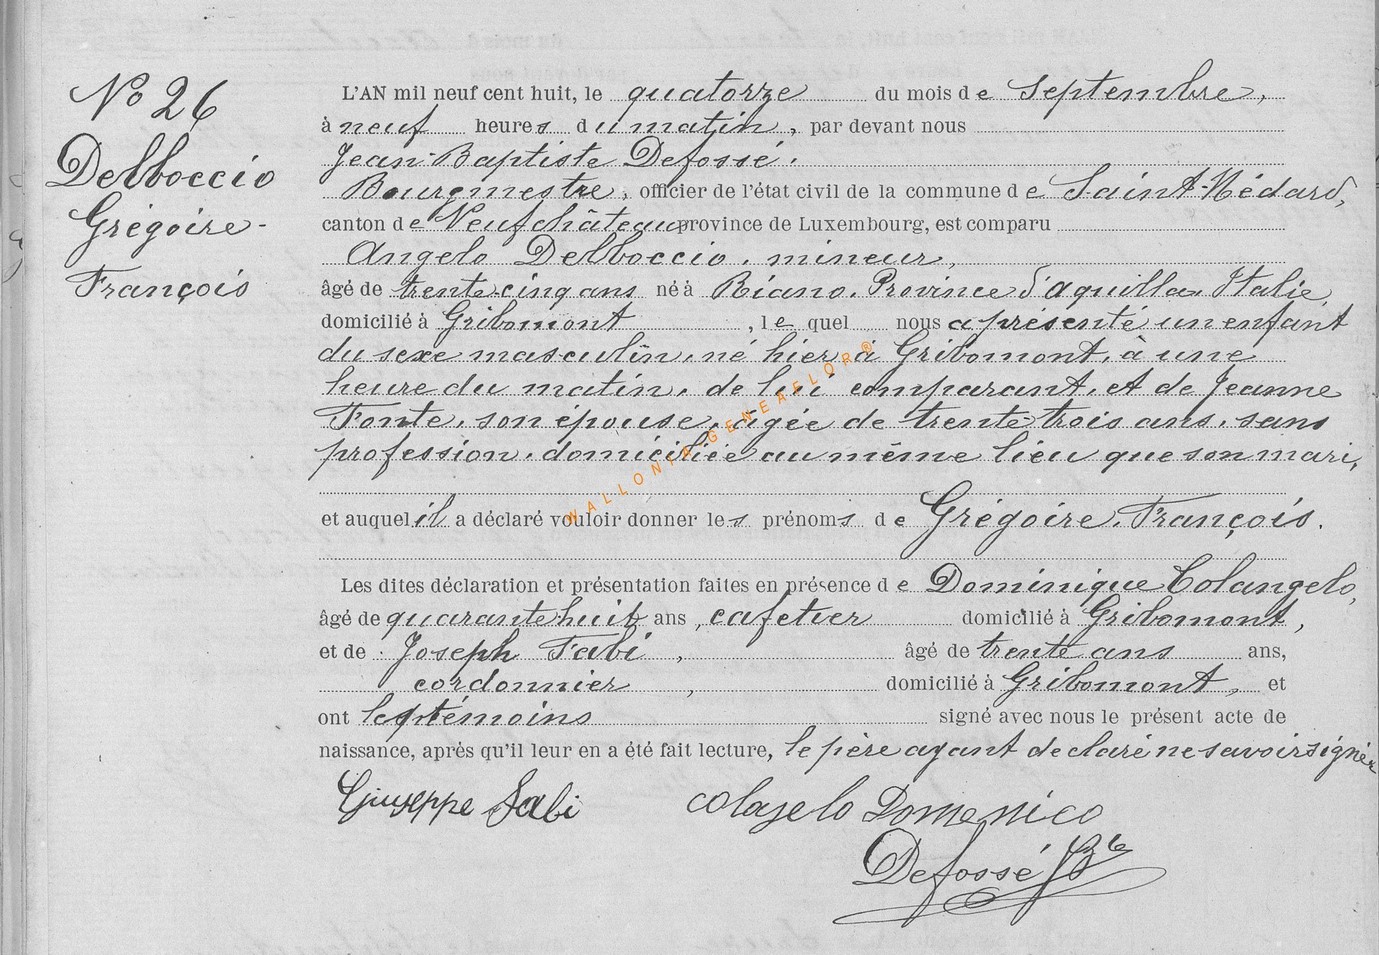 No 26
Delboccio
Grégoire-
François
L'AN mil neuf cent huit, le quatorze du mois de Septembre,
à neuf heures du matin, par devant nous
Jean-Baptiste Defossé,
Bourgmestre, officier de l'état civil de la commune de Saint-Médard,
canton de Neufchâteau province de Luxembourg, est comparu
Angelo Delboccio, mineur,
âgé de trente-cinq ans né à Biano, Province d'aquilla, Italie,
domicilié à Gribomont, le quel nous a présenté un enfant
du sexe masculin, né hier à Gribomont, à une
heure du matin, de lui comparant, et de Jeanne
Fonte, son épouse, âgée de trente trois ans, sans
profession, domiciliée au même lieu que son mari,
et auquel il a déclaré vouloir donner les prénoms de Grégoire, François.
Les dites déclaration et présentation faites en présence de Dominique Colangelo,
âgé de quarante huit ans, cafetier domicilié à Gribomont,
et de Joseph Fabi, âgé de trente ans ans,
cordonnier, domicilié à Gribomont, et
ont les témoins signé avec nous le présent acte de
naissance, après qu'il leur en a été fait lecture, le père ayant declaré ne savoir signer
Giuseppe Fabi Colagelo Domenico
Defossé JBte
WALLONIE GENEAFLOR®